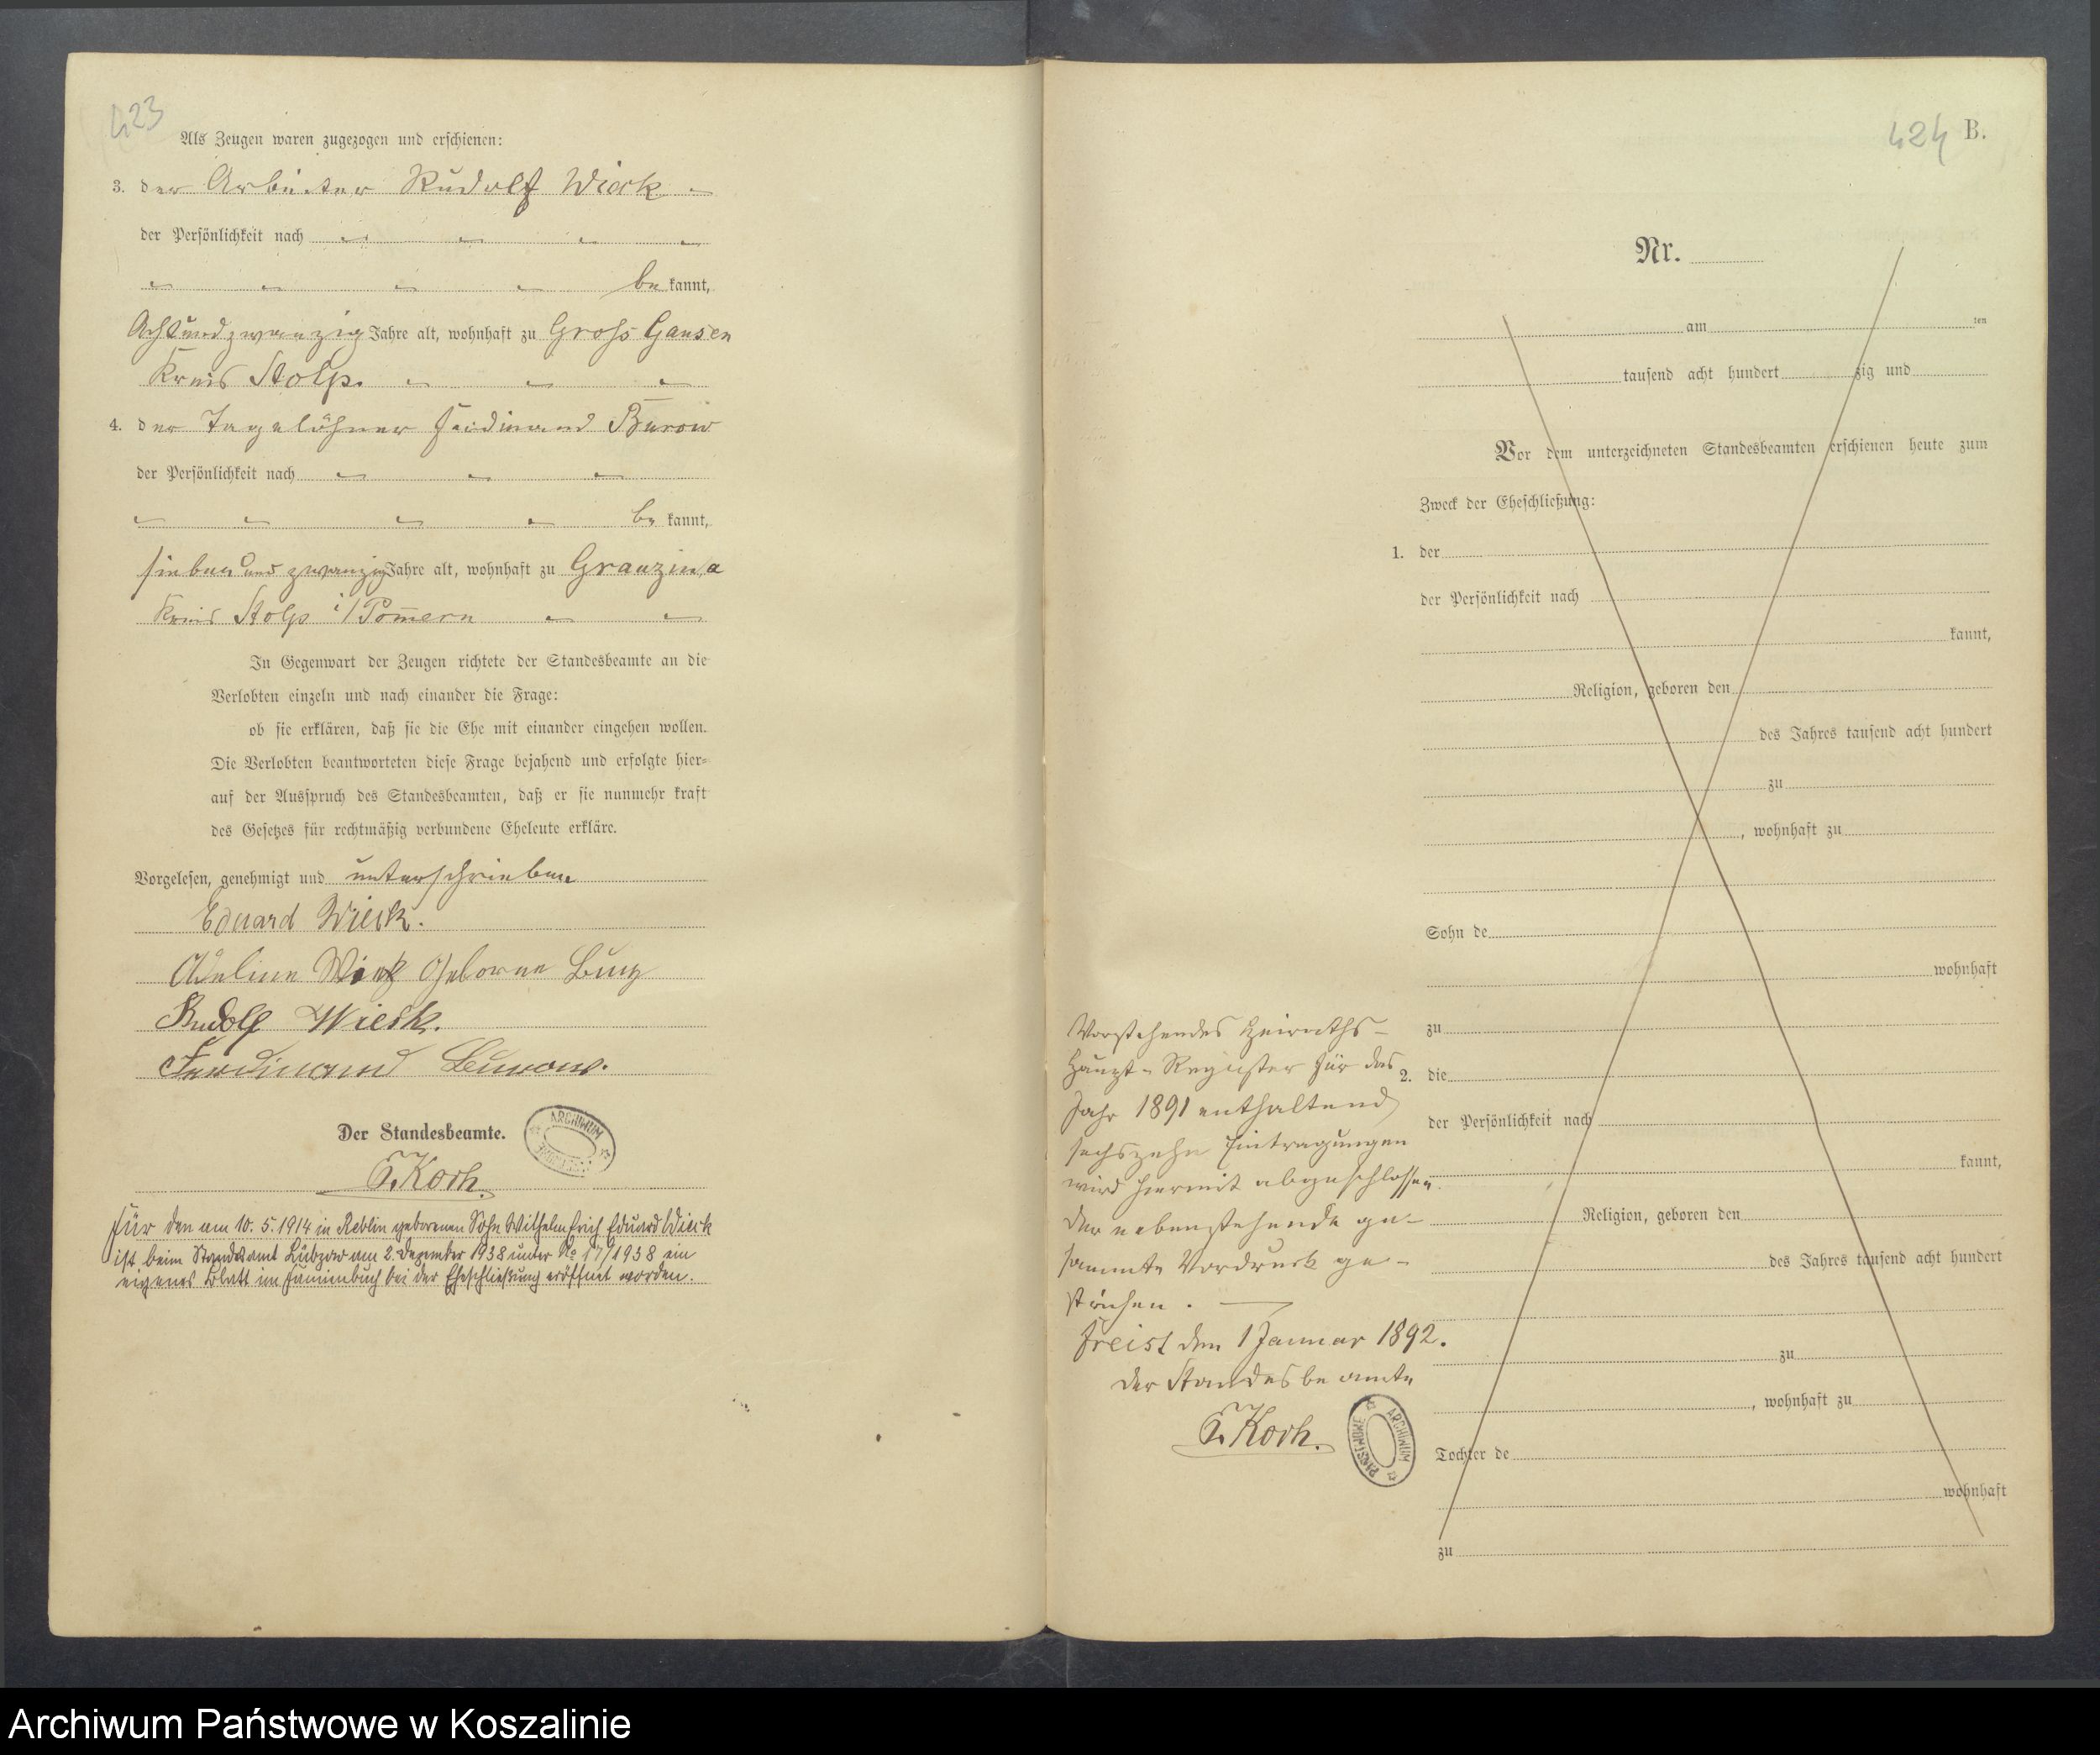 423
Als Zeugen waren zugezogen und erschienen:
3. der Arbeiter Rudolf Wieck
der Persönlichkeit nach
be kannt,
Achtundzwanzig Jahre alt, wohnhaft zu Gross Gansen
Kreis Stolp.
4. der Tagelöhner Ferdinand Burow
der Persönlichkeit nach
be kannt,
sieben und zwanzig Jahre alt, wohnhaft zu Granzin a
Kreis Stolp i/Pom̅ern
In Gegenwart der Zeugen richtete der Standesbeamte an die
Verlobten einzeln und nach einander die Frage:
ob sie erklären, daß sie die Ehe mit einander eingehen wollen.
Die Verlobten beantworteten diese Frage bejahend und erfolgte hier-
auf der Ausspruch des Standesbeamten, daß er sie nunmehr kraft
des Gesetzes für rechtmäßig verbundene Eheleute erkläre.
Vorgelesen, genehmigt und unterschrieben
Eduard Wieck.
Geborne
Rudolf Wieck.
Ferdinand Burow.
Der Standesbeamte.
Koch.
ARCHIWUM
für den am 10. 5. 1914 in Reblin geborenen Sohn Wilhelm Erich Eduard Wieck
ist beim Standesamt Lübzow am 2. Dezember 1938 unter No 17/1938 ein
eigenes Blatt im Familienbuch bei der Eheschließung eröffnet worden.
424 B.
Nr.
am ten
tausend acht hundert zig und
Vor dem unterzeichneten Standesbeamten erschienen heute zum
Zweck der Eheschließung:
1. der
der Persönlichkeit nach
kannt,
Religion, geboren den
des Jahres tausend acht hundert
zu
, wohnhaft zu
Sohn de
wohnhaft
zu
2. die
der Persönlichkeit nach
kannt,
Religion, geboren den
des Jahres tausend acht hundert
zu
, wohnhaft zu
Tochter de
wohnhaft
zu
Vorstehendes Heiraths-
Haupt-Register für das
Jahr 1891 enthaltend
sechszehn Eintragungen
wird hiermit abgeschlossen
der nebenstehende ge-
sammte Vordruck ge-
strichen.
Freist den 1 Januar 1892.
Der Standesbeamte
Koch.
ARCHIWUM PAŃSTWOWE
Archiwum Państwowe w Koszalinie